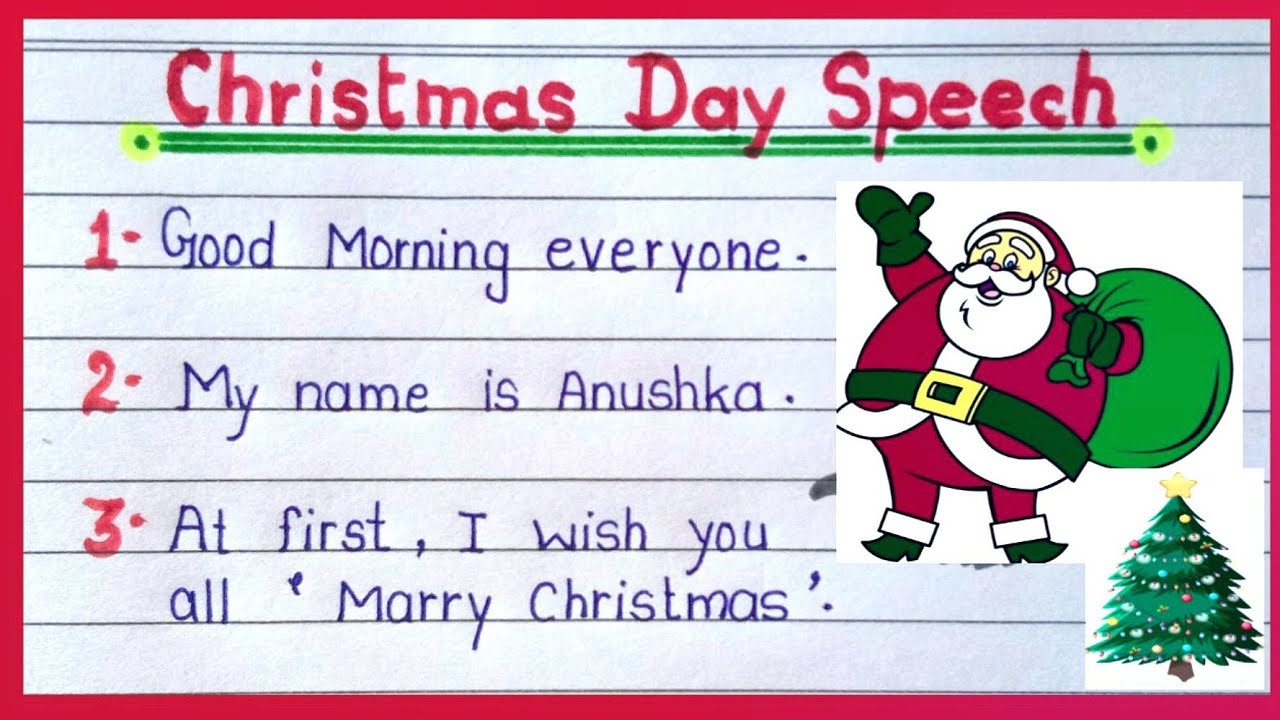 Christmas Day Speech
1. Good Morning everyone.
2. My name is Anushka.
3. At first, I wish you
all ‘Marry Christmas’.